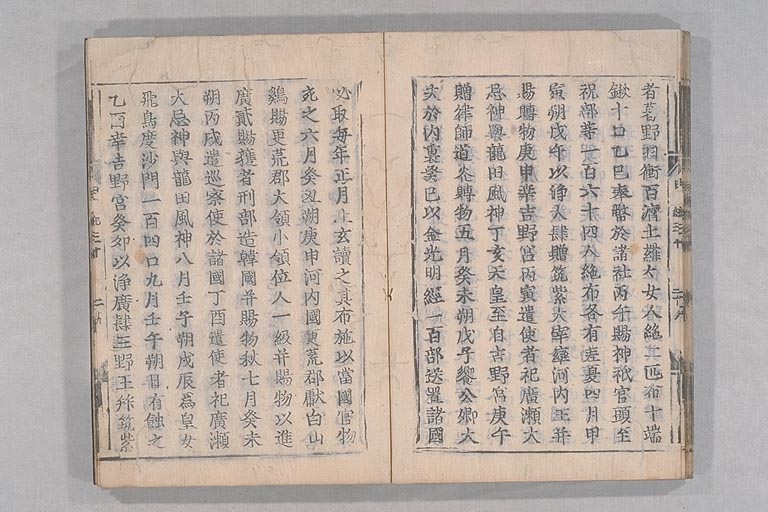 者葛野羽衝百濟土羅々女人絁其匹布十端
鍬十口乙巳奉幣於諸社丙午賜神祇官頭至
祝部等一百六十四人絁布各有差夏四月甲
寅朔戊午以淨大肆贈筑紫大宰率河內王并
賜賻物庚申幸吉野宮丙寅遣使者祀廣瀬大
忌神與龍田風神丁亥天皇至自吉野宮庚午
贈律師道光賻物五月癸未朔戊子饗公卿大
夫於內裏癸巳以金光明經一百部送置諸國
必取每年正月上玄讀之其布施以當國官物
充之六月癸丑朔庚申河內國更荒郡獻白山
鷄賜更荒郡大領小領位人一級并賜物以進
廣貳賜獲者刑部造韓國并賜物秋七月癸未
朔丙戌遣巡察使於諸國丁酉遣使者祀廣瀬
大忌神與龍田風神八月壬子朔戊辰為皇女
飛鳥度沙門一百四口九月壬午朔日有蝕之
乙酉幸吉野宮癸卯以淨廣肆三野王拜筑紫